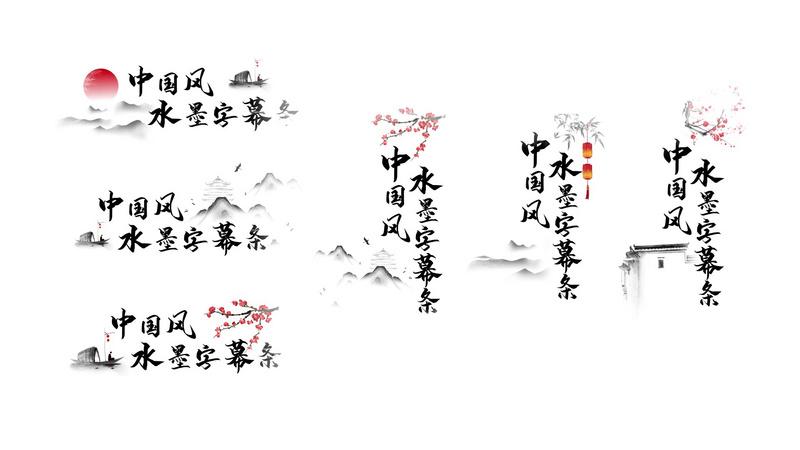 中国风
水墨字幕条
中国风
水墨字幕条
中国风
水墨字幕条
中国风
水墨字幕条
中国风
水墨字幕条
中国风
水墨字幕条